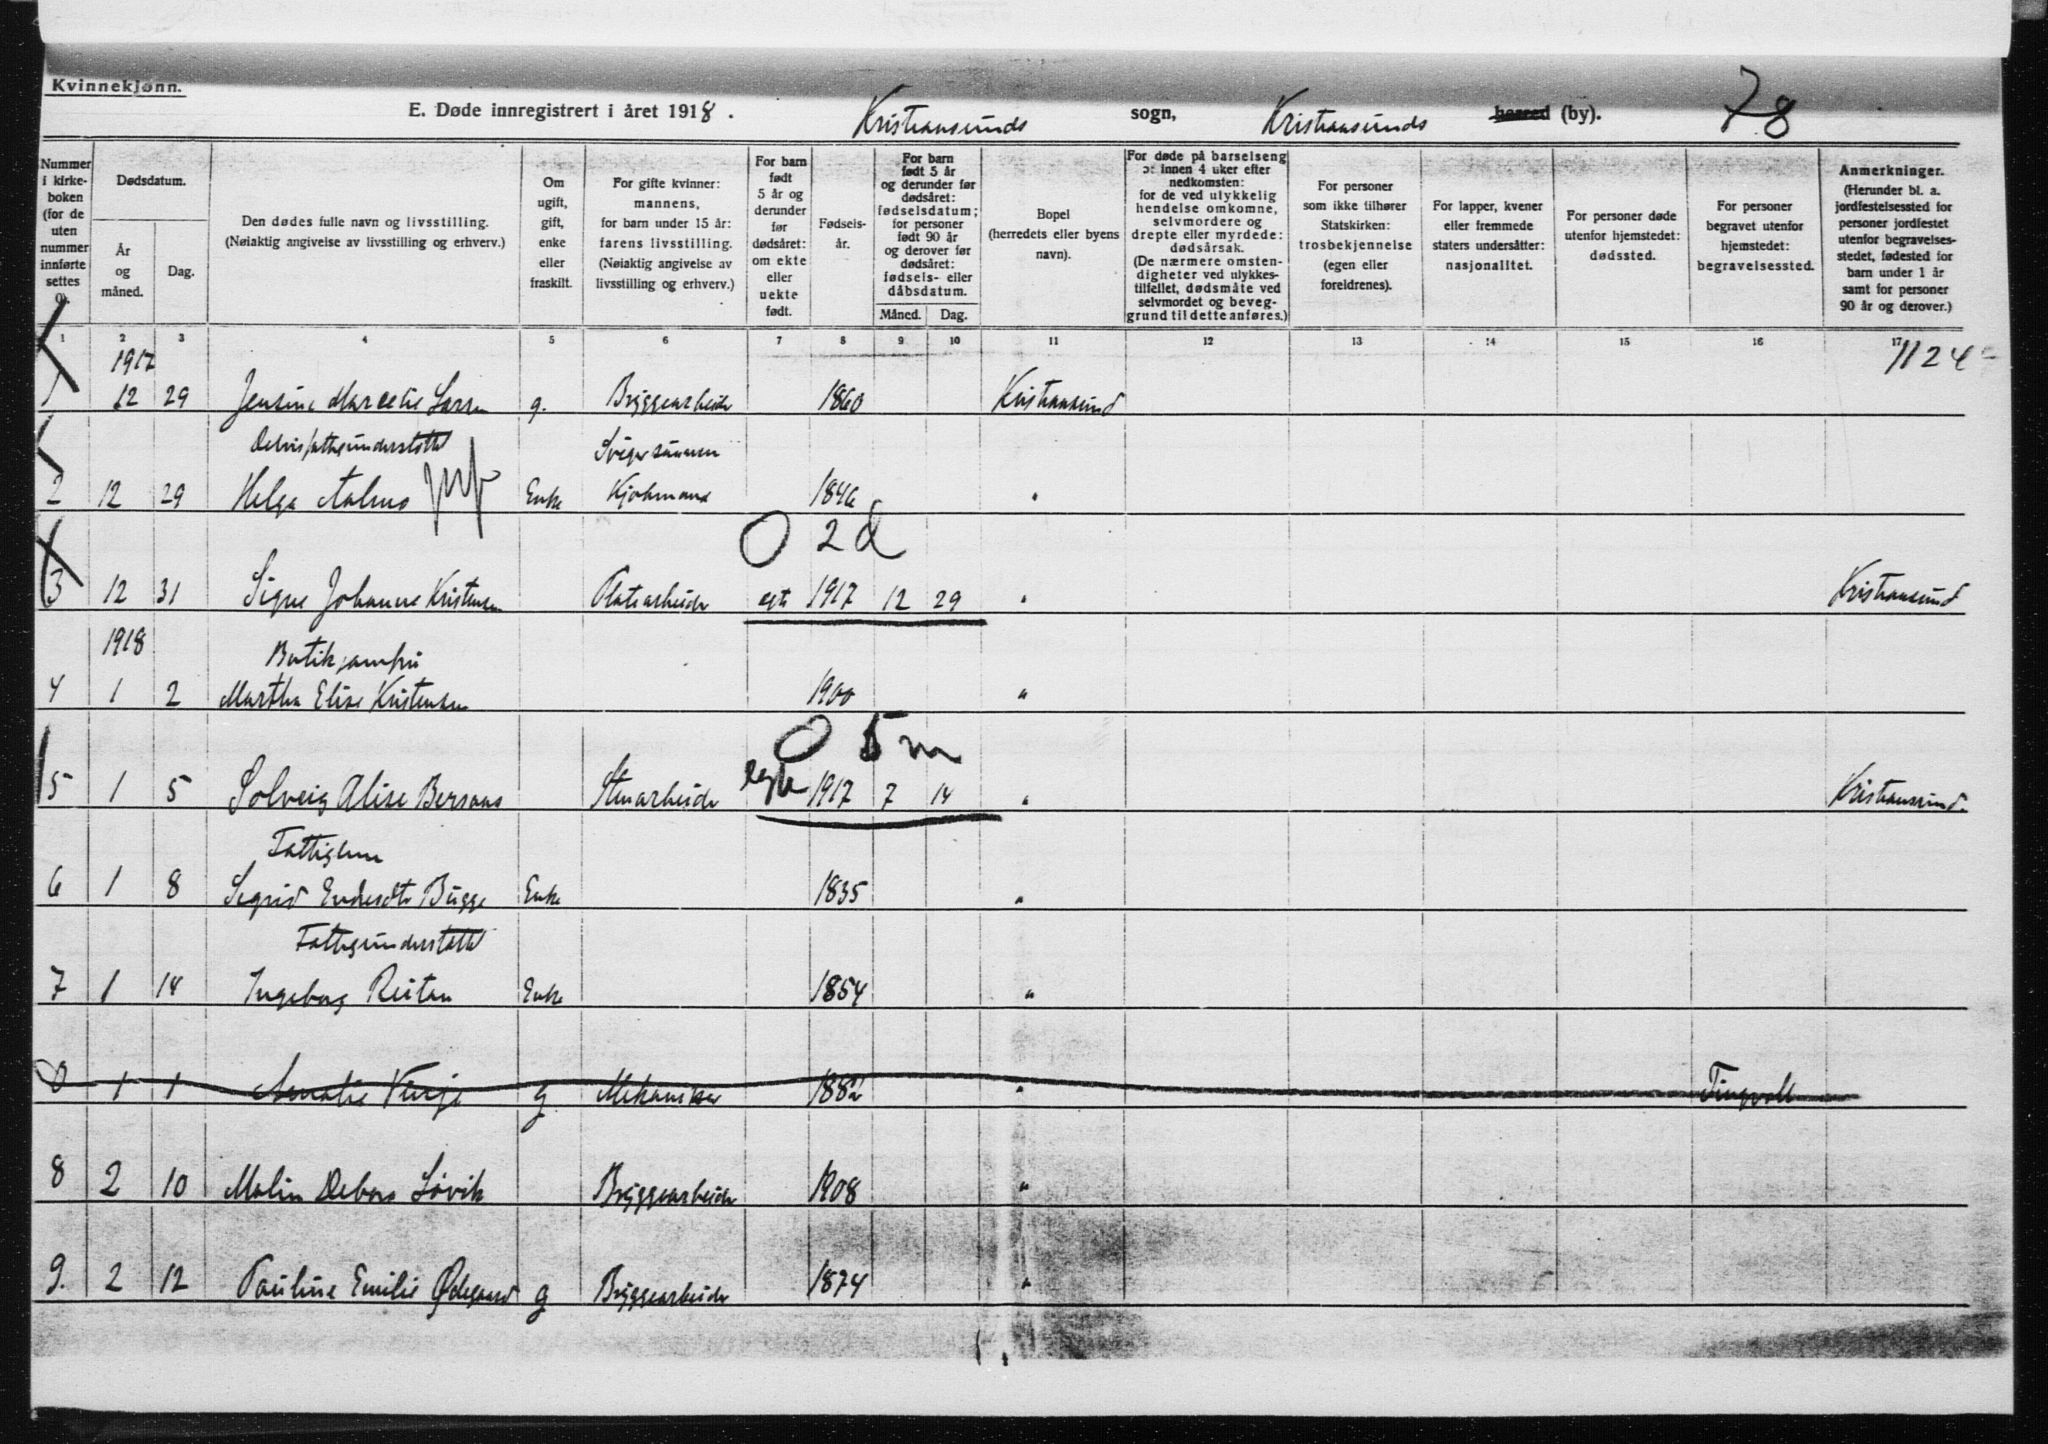 Kvinnekjønn.
E. Døde innregistrert i året 1918. Kristiansunds sogn, Kristiansunds herred (by). 78
Nummer i kirke-boken (for de uten nummer innførte settes 0).
Dødsdatum.
År og måned.
Dag.
Den dødes fulle navn og livsstilling.
(Nøiaktig angivelse av livsstilling og erhverv.)
Om ugift, gift, enke eller fraskilt.
For gifte kvinner: mannens, for barn under 15 år: farens livsstilling. (Nøiaktig angivelse av livsstilling og erhverv.)
For barn født 5 år og derunder før dødsåret: om ekte eller uekte født.
Fødsels-år.
For barn født 5 år og derunder før dødsåret: fødselsdatum; for personer født 90 år og derover før dødsåret: fødsels- eller dåbsdatum.
Måned. Dag.
Bopel (herredets eller byens navn).
For døde på barselseng ɔ: innen 4 uker efter nedkomsten: for de ved ulykkelig hendelse omkomne, selvmordere og drepte eller myrdede: dødsårsak. (De nærmere omsten-digheter ved ulykkes-tilfellet, dødsmåte ved selvmordet og beveg-grund til dette anføres.)
For personer som ikke tilhører Statskirken: trosbekjennelse (egen eller foreldrenes).
For lapper, kvener eller fremmede staters undersåtter: nasjonalitet.
For personer døde utenfor hjemstedet: dødssted.
For personer begravet utenfor hjemstedet: begravelsessted.
Anmerkninger. (Herunder bl. a. jordfestelsessted for personer jordfestet utenfor begravelses-stedet, fødested for barn under 1 år samt for personer 90 år og derover.)
1 2 3 4 5 6 7 8 9 10 11 12 13 14 15 16 17
1917 1124
1 12 29 Jensine Marcelie Larsen g. Bryggearbeider 1860 Kristiansund
Delvis fattigunderstøttet
2 12 29 Helga Aalmo Enke 1846 "
0 2 d
3 12 31 Signe Johanne Kristensen Platsarbeider egte 1917 12 29 " Kristiansund
1918
Butikjomfru
4 1 2 Martha Elise Kristensen 1900 "
0 5 m
5 1 5 Solveig Alise Stenarbeider egte 1917 7 14 " Kristiansund
Fattiglem
6 1 8 Sigrid Bugge Enke 1835 "
Fattigunderstøttet
7 1 14 Ingeborg Reitan Enke 1854 "
0 1 1 Amalie g 1882 " Tingvoll
8 2 10 Malin Debora Løvik Bryggearbeider 1908 "
9. 2 12 Pauline Emilie Ødegaard g Bryggearbeider 1874 "